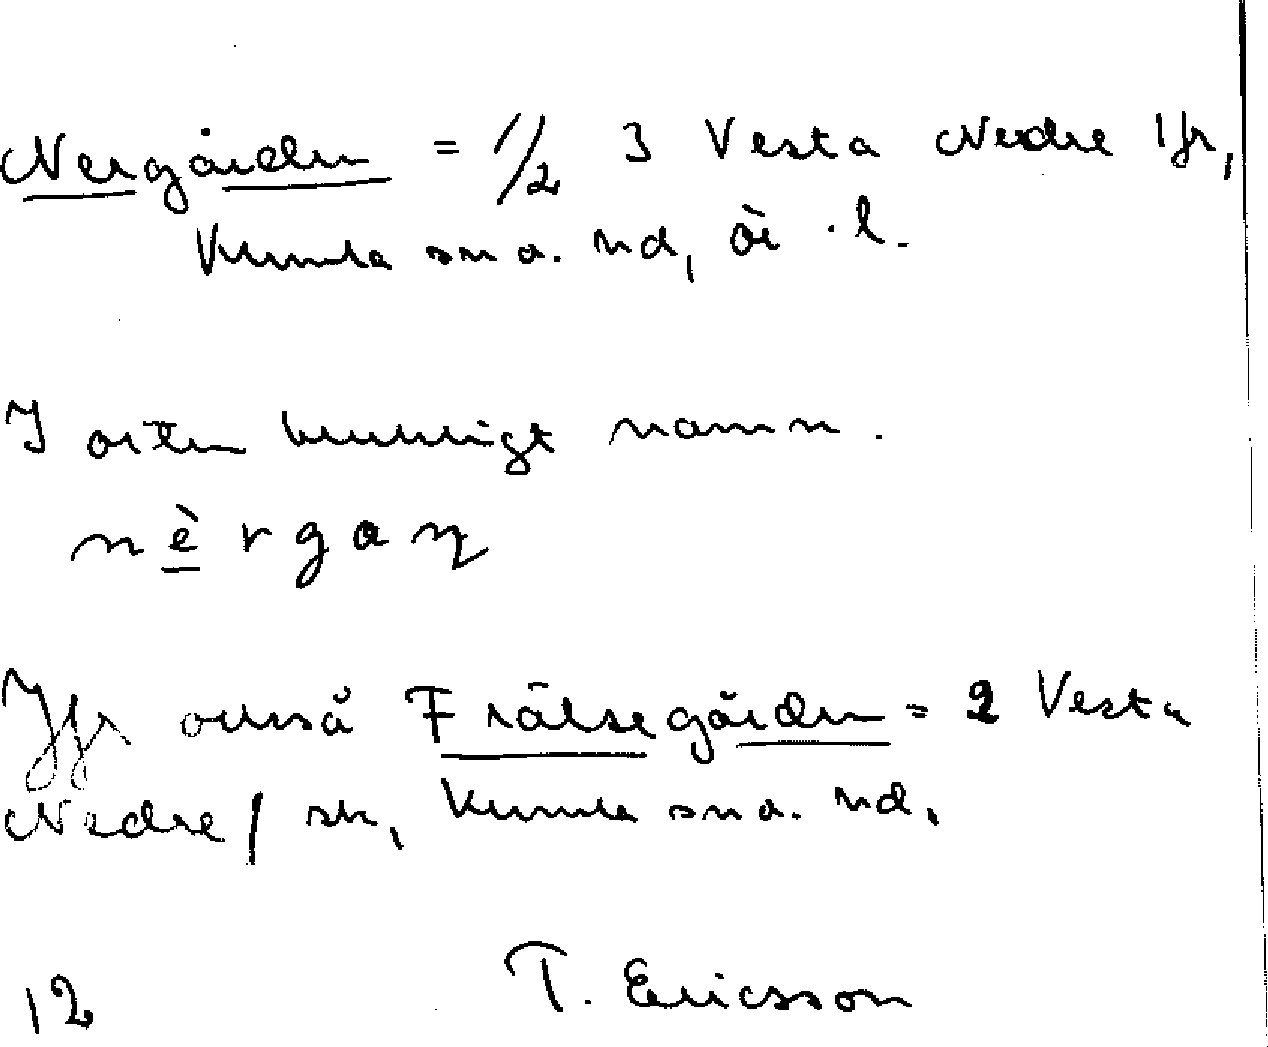 Nergården = 1/2 3 Vesta Nedre 1 fr,
Kumla sn o. hd, Ör. l.
I orten brukligt namn.
nèrgaɳ
Jfr också Frälsegården = 2 Vesta
Nedre / sk, Kumla sn o. hd,
12 T. Ericsson